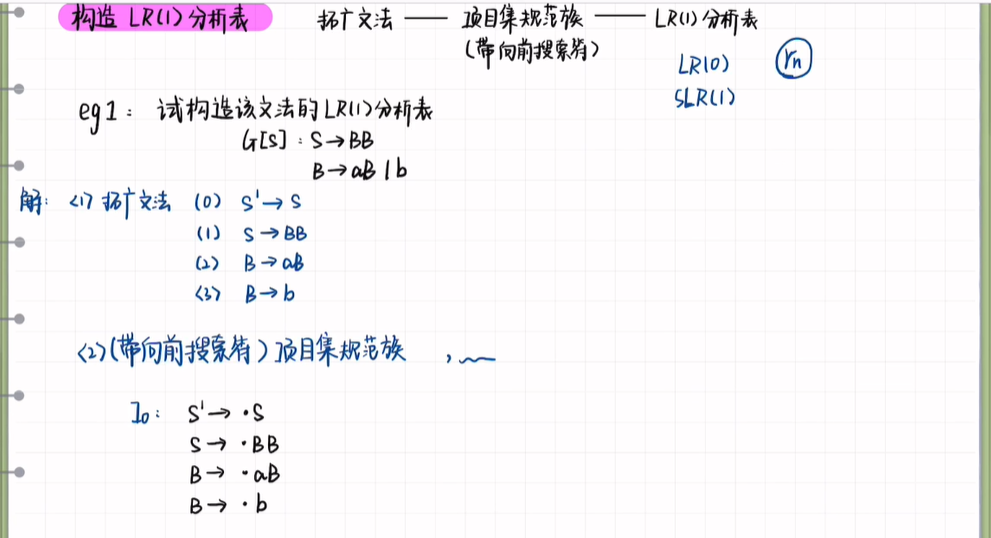 构造 LR(1)分析表 拓广文法 —— 项目集规范族 —— LR(1)分析表
(带向前搜索符)
LR(0) rn
SLR(1)
eg1: 试构造该文法的LR(1)分析表
G[S]: S→BB
B→aB|b
解: <1>拓广文法 (0) S'→S
(1) S→BB
(2) B→aB
<3> B→b
<2>(带向前搜索符)项目集规范族 ,
I₀: S'→·S
S→·BB
B→·aB
B→·b